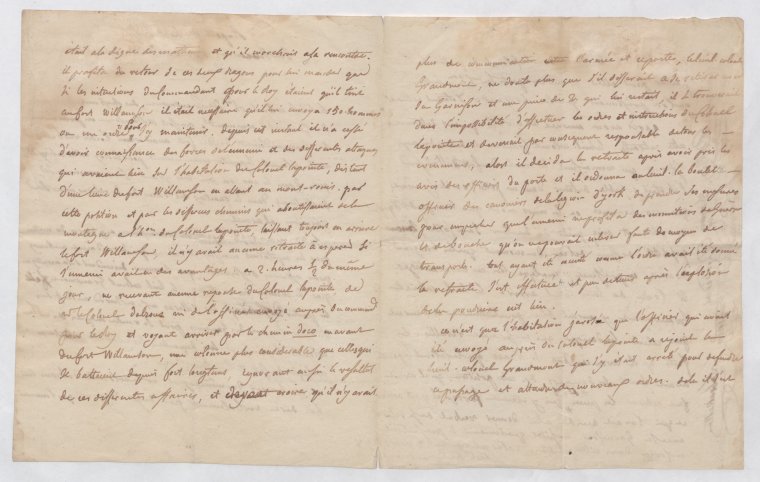 était à la digue des matheux et qu'il marchait à sa rencontre.
il profita du retour de ces deux dragons pour lui mander que
si les intentions du Commandant pour le Roy étaient qu'il tint
au fort Williamson il était nécessaire qu'il lui envoya 150 hommes
ou un ordre pour s'y maintenir. depuis cet instant il n'a cessé
d'avoir connaissance des forces de l'ennemi et des différentes attaques
qui avaient lieu sur l'habitation du Colonel lapointe, distant
d'une lieue du fort Williamson en allant au mont-rouis. par
cette position et par les différens chemins qui aboutissaient de la
montagne à l'h.on du Colonel lapointe, laissant toujours en arrière
le fort Williamson, il n'y avait aucune retraite à espérer si
l'ennemi avait eu des avantages. a 2. heures ½ du même
jour, ne recevant aucune réponse du Colonel lapointe de
Mr le Colonel ni de l'officier envoyé auprès du command.t
pour le Roy et voyant arriver par le chemin en avant
du fort Williamson, une colonne plus considérable que celles qui
se battaient depuis fort longtems, ignorant enfin le résultat
de ces différentes affaires, et croire qu'il n'y avait
plus de communication entre l'arcahaye et ce poste, le lieut. colonel
Grandmont, ne douta plus que s'il différait à se retirer avec
sa Garnison et une pièce de 2. qui lui restait, il se trouverait
dans l'impossibilité d'effectuer les ordres et instructions du Colonel
lapointe et devenait par conséquent responsable de tous les
évenemens, alors il décida la retraite après avoir pris les
avis des officiers du poste et il ordonna au lieut.
officier des canoniers de la légion d'york de prendre des mesures
pour empecher que l'ennemi ne profita des munitions de Guerre
et de bouche qu'on ne pouvait enlever faute de moyens de
transports. tout ayant été exécuté comme l'ordre avait été donné
la retraite s'est effectuée et peu de tems après l'explosion
de la poudrière eut lieu.
ce n'est que l'habitation que l'officier qui avait
été envoyé auprès du Colonel lapointe a rejoint le
lieut. colonel Grandmont qui s'y était arrêté pour défendre
ce passage et attendre de nouveaux ordres. de la il s'est